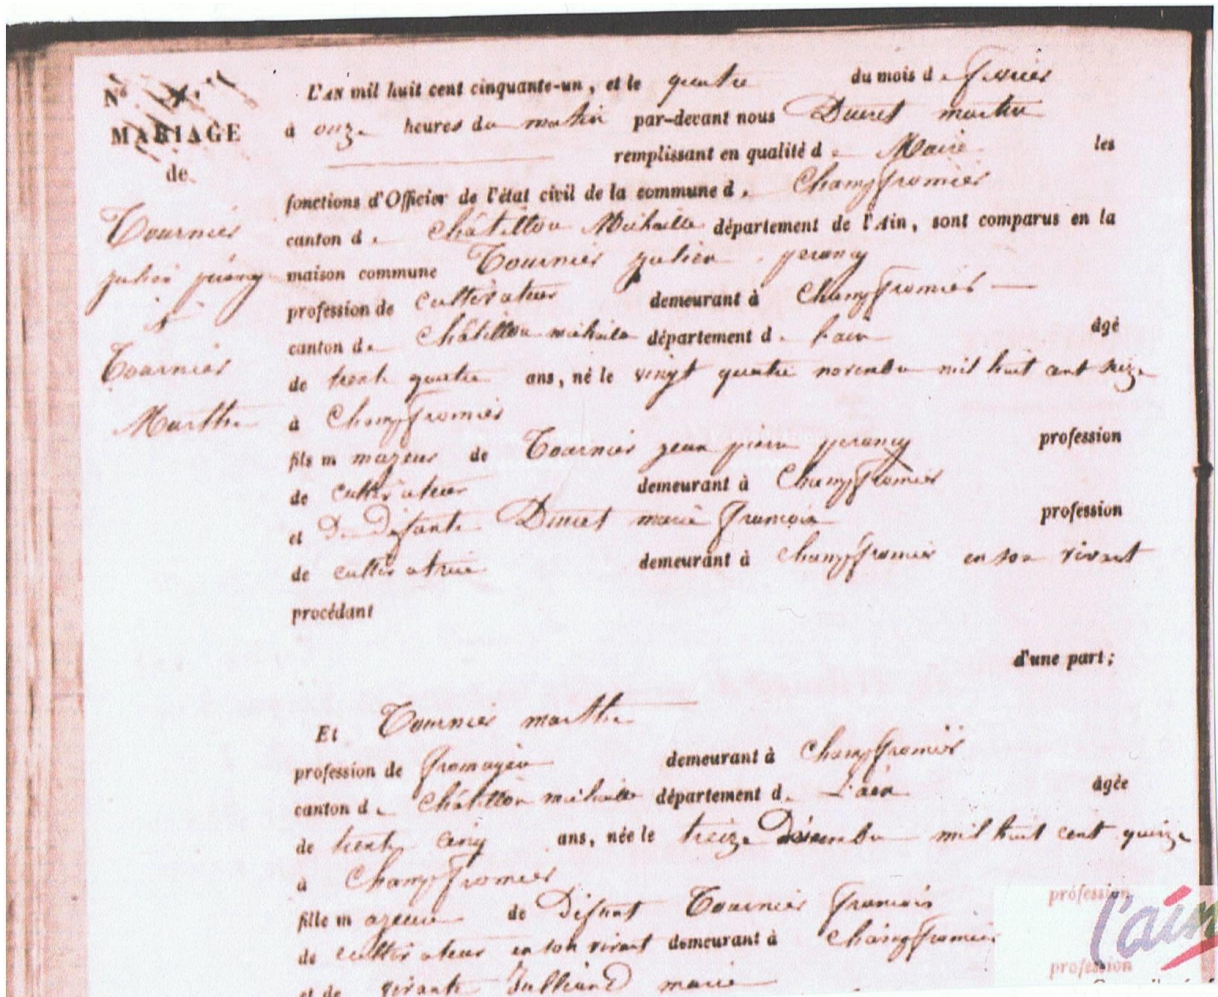 N° 4.
MARIAGE
de
Tournier
julien perancy
&
Tournier
Marthe
L'AN mil huit cent cinquante-un, et le quatre du mois de fevrier
à onze heures du matin par-devant nous Ducret martin
remplissant en qualité de Maire les
fonctions d'Officier de l'état civil de la commune de Champfromier
canton de Châtillon Michaille département de l'Ain, sont comparus en la
maison commune Tournier julien perancy
profession de cultivateur demeurant à Champfromier
canton de Châtillon michaille département de l'ain âgé
de trente quatre ans, né le vingt quatre novembre mil huit cent seize
à Champfromier
fils majeur de Tournier jean pierre perancy profession
de cultivateur demeurant à Champfromier
et De defante Ducret marie francoise profession
de cultivatrice demeurant à Champfromier en son vivant
procédant
d'une part;
Et Tournier marthe
profession de demeurant à Champfromier
canton de Châtillon michaille département de L'ain âgée
de trente cinq ans, née le treize Désembre mil huit cent quinze
à Champfromier
fille majeure de Défunt Tournier francois profession
de cultivateur en son vivant demeurant à Champfromier
et de vivante Julliand marie profession
l'ain